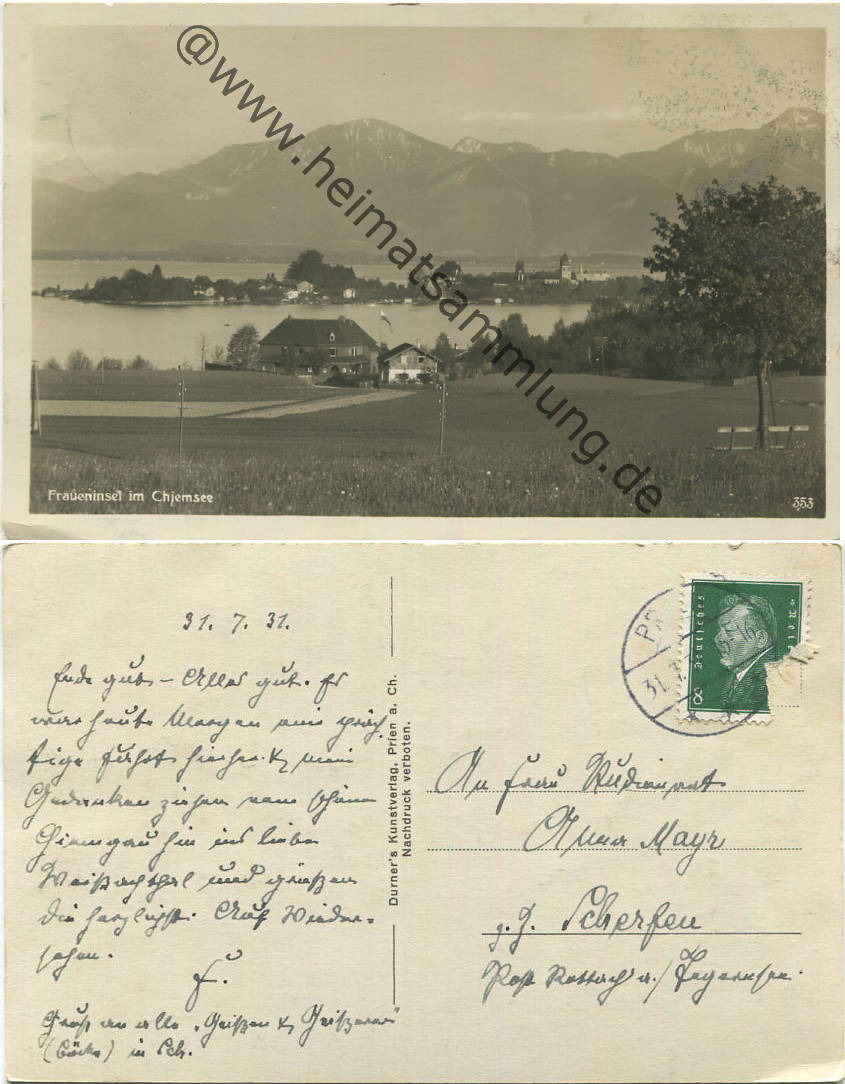 @www.heimatsammlung.de
Fraueninsel im Chiemsee
353
31. 7. 31.
Ende gut – Alles gut. Es
war heute Morgen eine präch-
tige Fahrt hierher & meine
Gedanken ziehen vom schönen
Chiemgau hin ins liebe
Weißachthal und grüßen
die herzlichst. Auf Wieder-
sehen.
F.
Gruß an alle „Geißen &
(Böcke) in Sch.
Durner's Kunstverlag, Prien a. Ch.
Nachdruck verboten.
Deutsches Reich
8
31.7
An Frau Studienrat
Anna Mayr
z. Z. Scherfen
Post Rottach a./Tegernsee.